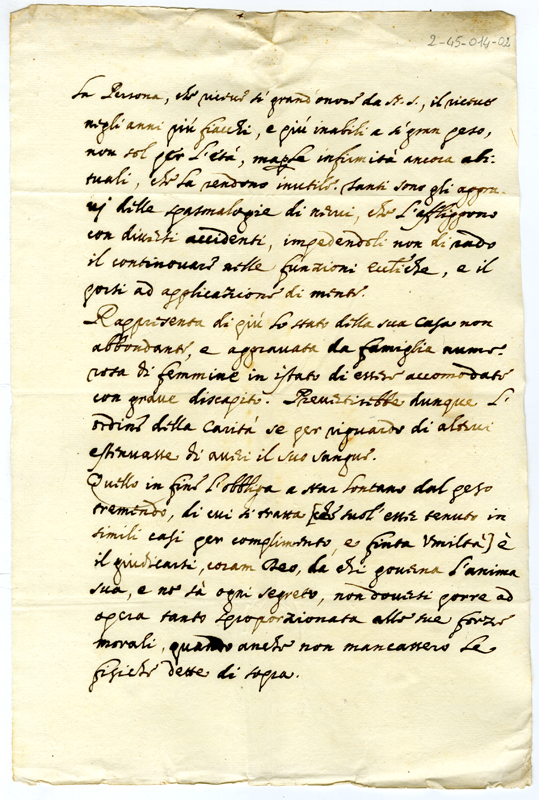 2-45-014-02
La Persona, che riceve sì grand'onore da N.S., il riceve
negli anni più fiacchi, e più inabili a sì gran peso,
non sol per l'età, ma per le infirmità ancora abi-
tuali, che la rendono inutile. Tanti sono gli aggra-
vj delle spasmalogie di nervi, che l'affliggono
con diversi accidenti, impedendoli non di rado
il continovare nelle funzioni Eccl:che, e il
porsi ad applicazione di mente.
Rappresenta di più lo stato della sua Casa non
abbondante, e aggravata da famiglia nume-
rosa di femmine in istato di essere accomodate
con grave discapito. Prevertirebbe dunque l'
ordine della Carità se per riguardo di alcuni
estenuasse di averi il suo sangue.
Quello in fine l'obbliga a star lontano dal peso
tremendo, di cui si tratta [che suol esser tenuto in
simili casi per complimento, e finta Umiltà] è
il giudicarsi, coram Deo, da chi governa l'anima
sua, e ne sà ogni segreto, non doversi porre ad
opera tanto sproporzionata alle sue forze
morali, quando anche non mancassero le
fisiche dette di sopra.